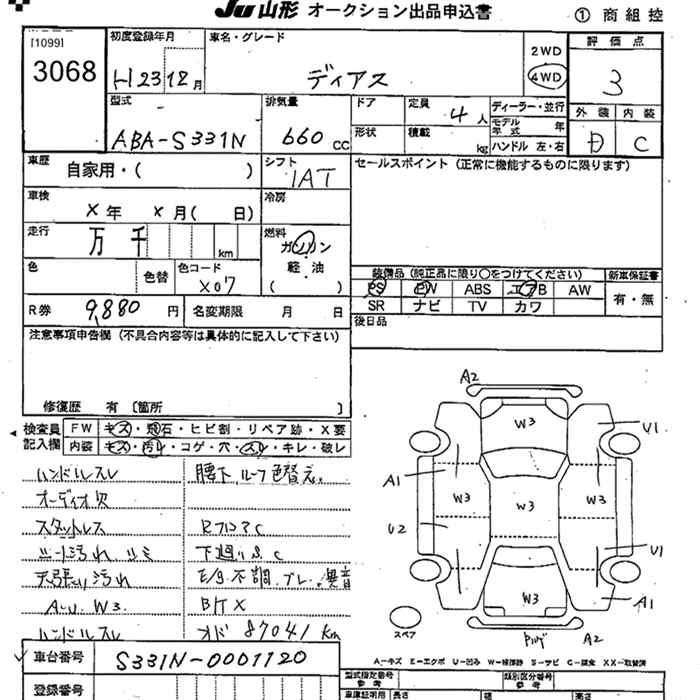 JU山形 オークション出品申込書
① 商組控
[1099]
3068
初度登録年月
H23 12月
車名・グレード
ディアス
2WD
4WD
評価点
3
型式
ABA-S331N
排気量
660 CC
ドア
定員
4人
形状
積載
kg
ディーラー・並行
モデル年式 年
ハンドル 左・右
外装
D
内装
C
車歴
自家用・( )
シフト
IAT
セールスポイント (正常に機能するものに限ります)
車検
X年 X月( 日)
冷房
走行
万 千
km
燃料
ガソリン
軽・油
( )
色
色替
色コード
X07
装備品 (純正品に限り○をつけてください)
新車保証書
PS PW ABS エアB AW
SR ナビ TV カワ
有・無
R券
9,880 円
名変期限 月 日
後日品
注意事項申告欄 (不具合内容等は具体的に記入して下さい)
修復歴 有 〔箇所 〕
検査員記入欄
FW キズ・飛石・ヒビ割・リペア跡・X要
内装 キズ・汚レ・コゲ・穴・スレ・キレ・破レ
ハンドルスレ
腰下、ルーフ色替え
オーディオ欠
スタットレス
シート汚れ シミ
下廻りS.C
天張り汚れ
E/g不調、ブレ、異音
A.U.W3
ハンドルスレ
オド 87041km
車台番号
S331N-0001120
登録番号
型式指定番号
参考
類別区分番号
参考
車庫証明用
長さ
幅
高さ
A2
W3
U1
A1
W3
W3
W3
U2
U1
W3
A1
A2
スペア
A-キズ E-エクボ U-凹み W-補修跡 S-サビ C-腐食 XX-取替済